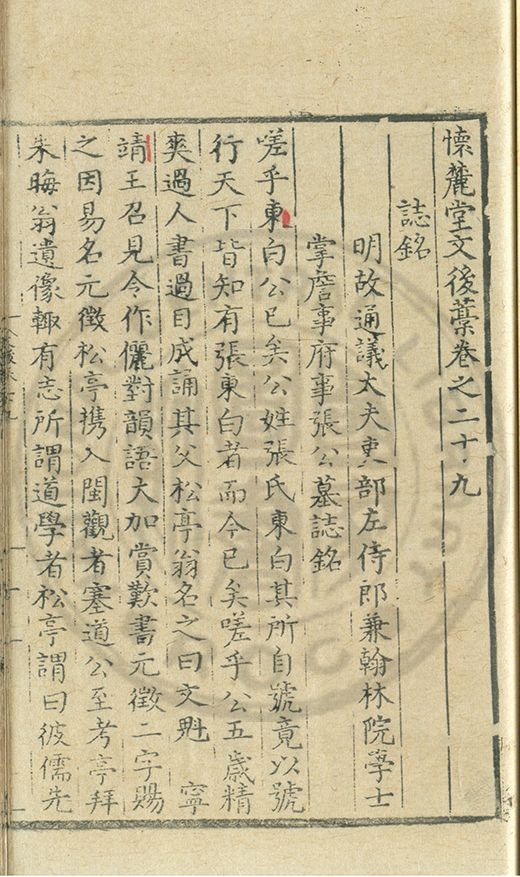 懷麓堂文後藁卷之二十九
誌銘
明故通議大夫吏部左侍郎兼翰林院學士
掌詹事府事張公墓誌銘
嗟乎東白公已矣公姓張氏東白其所自號竟以號
行天下皆知有張東白者而今已矣嗟乎公五歲精
爽過人書過目成誦其父松亭翁名之曰文魁 寧
靖王召見令作儷對韻語大加賞歎書元徵二字賜
之因易名元徵松亭携入閩觀者塞道公至考亭拜
朱晦翁遺像輙有志所謂道學者松亭謂曰彼儒先